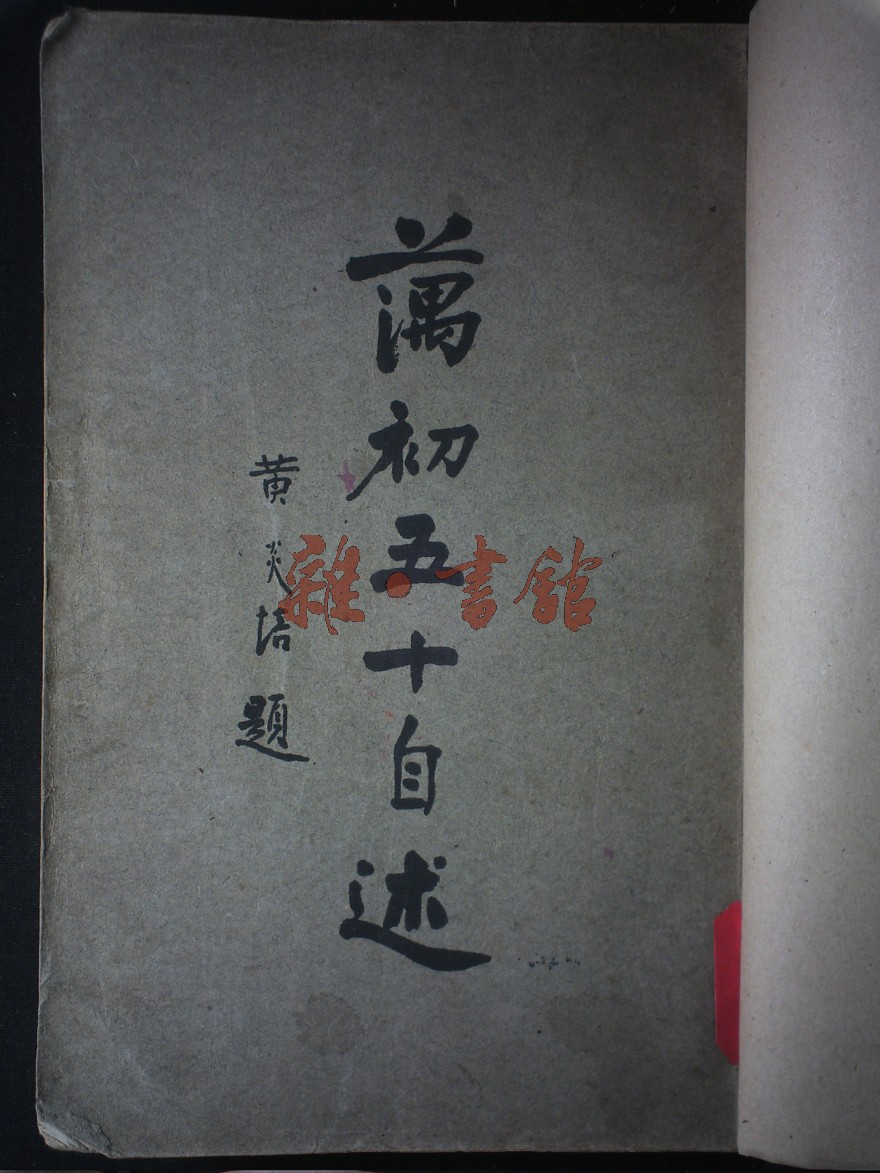 蕅初五十自述
黄炎培題
雜·書館